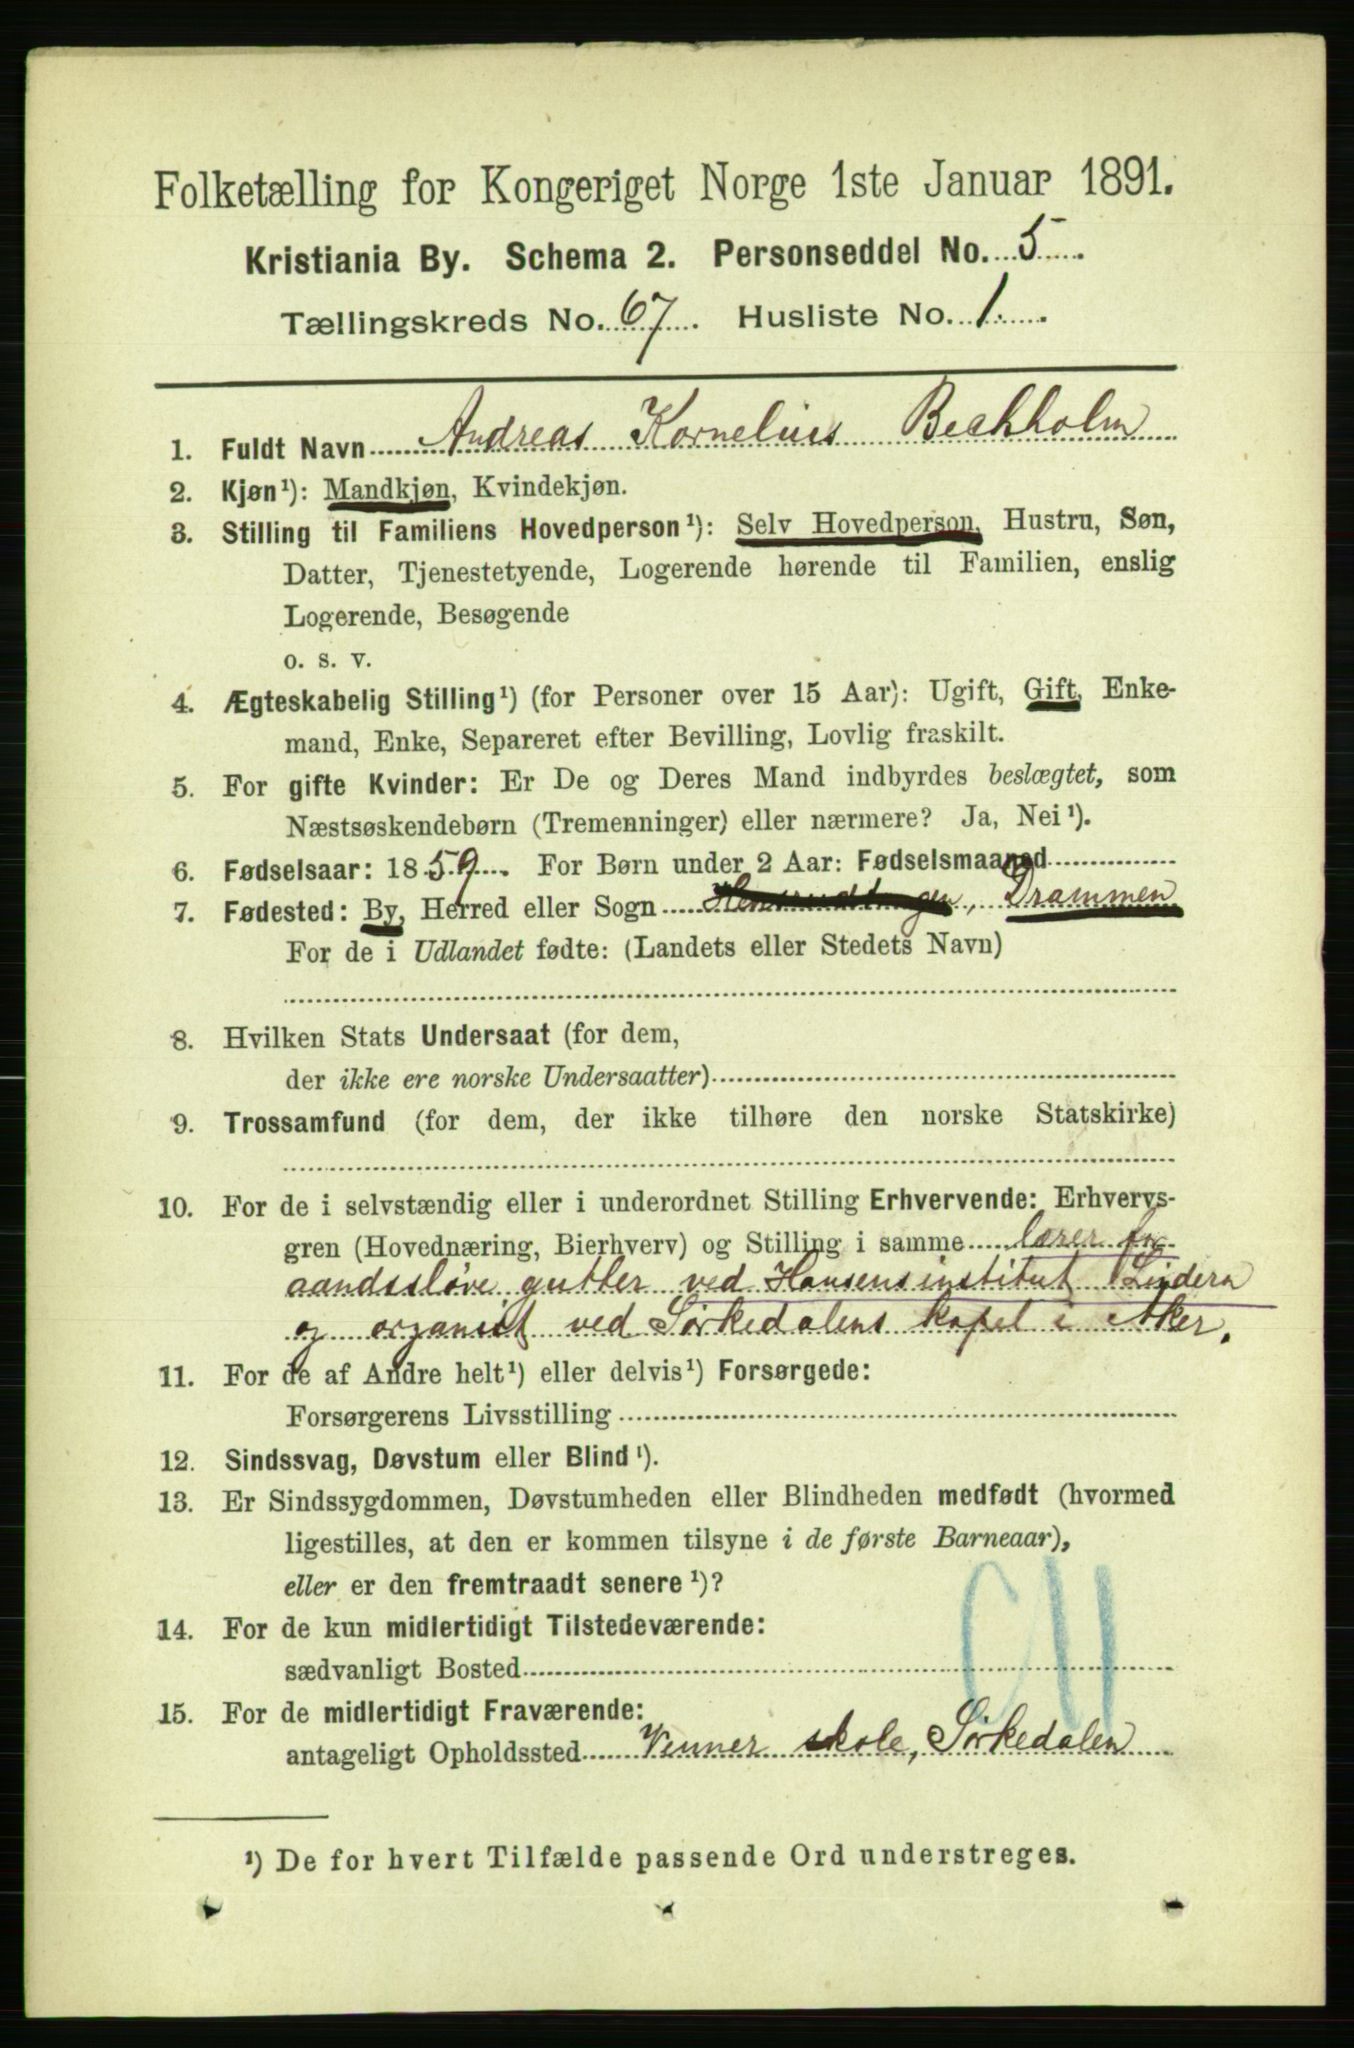 Folketælling for Kongeriget Norge 1ste Januar 1891.
Kristiania By. Schema 2. Personseddel No. 5.
Tællingskreds No. 67. Husliste No. 1.
1. Fuldt Navn Andreas Kornelius Beckholm
2. Kjøn¹): Mandkjøn, Kvindekjøn.
3. Stilling til Familiens Hovedperson¹): Selv Hovedperson, Hustru, Søn,
Datter, Tjenestetyende, Logerende hørende til Familien, enslig
Logerende, Besøgende
o. s. v.
4. Ægteskabelig Stilling¹) (for Personer over 15 Aar): Ugift, Gift, Enke-
mand, Enke, Separeret efter Bevilling, Lovlig fraskilt.
5. For gifte Kvinder: Er De og Deres Mand indbyrdes beslægtet, som
Næstsøskendebørn (Tremenninger) eller nærmere? Ja, Nei¹).
6. Fødselsaar: 1859. For Børn under 2 Aar: Fødselsmaaned
7. Fødested: By, Herred eller Sogn Drammen
For de i Udlandet fødte: (Landets eller Stedets Navn)
8. Hvilken Stats Undersaat (for dem,
der ikke ere norske Undersaatter)
9. Trossamfund (for dem, der ikke tilhøre den norske Statskirke)
10. For de i selvstændig eller i underordnet Stilling Erhvervende: Erhvervs-
gren (Hovednæring, Bierhverv) og Stilling i samme lærer for
aandssløve gutter ved Hansens institut Lindern
og organist ved Sørkedalens kapel i Aker.
11. For de af Andre helt¹) eller delvis¹) Forsørgede:
Forsørgerens Livsstilling
12. Sindssvag, Døvstum eller Blind¹).
13. Er Sindssygdommen, Døvstumheden eller Blindheden medfødt (hvormed
ligestilles, at den er kommen tilsyne i de første Barneaar),
eller er den fremtraadt senere¹)?
14. For de kun midlertidigt Tilstedeværende:
sædvanligt Bosted
15. For de midlertidigt Fraværende:
antageligt Opholdssted Venner skole, Sørkedalen
¹) De for hvert Tilfælde passende Ord understreges.